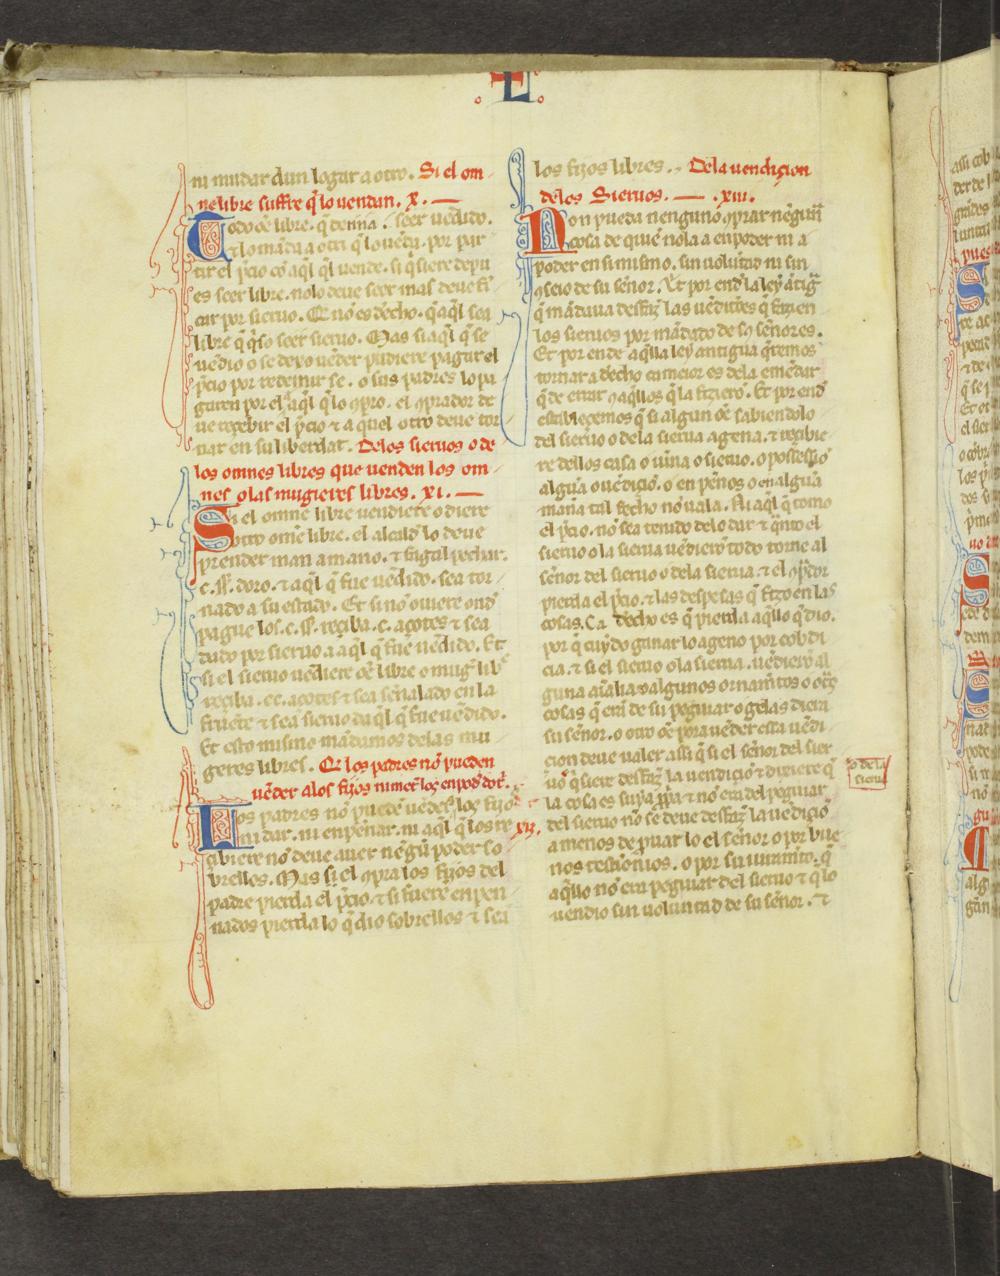 L
ni mudar dun logar a otro. Si el om
ne libre suffre q̃ lo uendan. X.
Todo oẽ libre. q̃ denna. seer uẽdido.
⁊ lo mãda a otri q̃ lo uẽda. por par
tir el p̃cio cõ aq̃l q̃l uende. si q̃siere depu
es seer libre. nolo deue seer mas deue fĩ
car por sieruo. Ca nõ es derecho. q̃ aq̃l sea
libre q̃ q̃so seer sieruo. Mas si aq̃l q̃ se
uẽdio o se dexo uẽder pudiere pagar el
p̃cio por redemir se. o sus padres lo pa
garen por el a aq̃l q̃ lo ꝯpro. el ꝯprador de
ue reçebir el p̃cio ⁊ a quel otro deue tor
nar en su libertat. Delos sieruos o de
los omnes libres que uenden los om
nes olas mugieres libres. xi.
Si el omne libre uendiere o diere
otro omẽ libre. el alcalđ lo deue
prender man a mano. ⁊ fagal pechar.
.c. ss. doro. ⁊ aq̃l q̃ fue uẽdido. sea tor
nado a su estado. Et si nõ ouiere onđ
pague los .c. ss. reçiba .c. açotes ⁊ sea
dado por sieruo a aq̃l q̃ fue uẽdido. Et
si el sieruo uẽdiere oẽ libre o mug̃ lib̃
reçiba .cc. açotes ⁊ sea señalado en la
fruete ⁊ sea sieruo da q̃l q̃ fue uẽdido.
Et esto mismo mãdamos delas mu
geres libres. Q̃ los padres nõ pueden
uẽder alos fijos ni met̃ los en pođ dot̃.
Los padres nõ puedẽ uẽder los fijos xij.
ni dar. ni enpeñar. ni aq̃l q̃ los re
çibiere nõ deue auer nẽgũ poder so
brellos. Mas si el ꝯpra los fijos del
padre pierda el p̃cio. ⁊ si fuere en pen
nados pierda lo q̃ dio sobrellos ⁊ sea
los fijos libres. Dela uendiçion
delos Sieruos. .xiii.
Non pueda nenguno ꝯprar nẽgũa
cosa de quiẽ nola a en poder ni a
poder en si mismo. sin uoluntad ni sin
ꝯseio de su señor. Et por end la ley ãtiḡ
q̃ mãdaua desfaz̃ las uẽdiciões q̃ fazẽ
los sieruos por mãdado de sos señores.
Et por ende aq̃lla ley antigua q̃remos
tornar a derecho ca meior es dela emẽdar
q̃ de errar ꝯ aq̃llos q̃ la fizierõ. Et por end
establecemos q̃ si algun oẽ sabiendolo
del sieruo o dela sierua agena. ⁊ reçibie
re dellos casa o uiña o sieruo. o possessiõ
algũa o uẽdiciõ. o en peños o en algũa
maña tal fecho nõ uala. Ni aq̃l q̃ tomo
el p̃cio. nõ sea tenido delo dar ⁊ q̃nto el
sieruo o la sierua uẽdierõ todo torne al
señor del sieruo o dela sierua. ⁊ el ꝯp̃dor
pierda el p̃cio. ⁊ las despesas q̃ fizo en las
cosas. Ca derecho es q̃ pierda aq̃llo q̃ dio.
por q̃ cuydo ganar lo ageno por cobdi
cia. ⁊ si el sieruo o la sierua. uẽdierõ al
guna aĩalia o algunos ornamẽtos o otr̃s
cosas q̃ erã de su peguiar o gelas diera
su señor. o otro oẽ pora uẽder esta uẽdi
cion deue ualer assi q̃ si el señor del sier
uo q̃siere desfaz̃ la uendiciõ ⁊ dixiere q̃
la cosa es suya p̃pa ⁊ nõ era del peguiar
del sieruo nõ se deue desfaz̃ la uẽdiciõ
a menos de p̃uar lo el señor o por bue
nos testimõios. o por su iuramẽto. q̃
aq̃llo nõ era peguiar del sieruo ⁊ q̃ lo
uendio sin uoluntad de su señor. ⁊
o dela
sierua